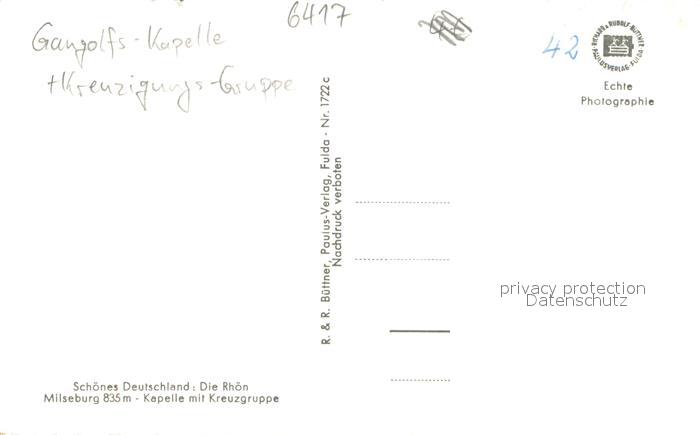 6417
Gangolfs-Kapelle
+Kreuzigungs-Gruppe
42
RICHARD & RUDOLF BÜTTNER
PAULUSVERLAG FULDA
Echte
Photographie
R. & R. Büttner, Paulus-Verlag, Fulda - Nr. 1722 c
Nachdruck verboten
privacy protection
Datenschutz
Schönes Deutschland: Die Rhön
Milseburg 835 m - Kapelle mit Kreuzgruppe